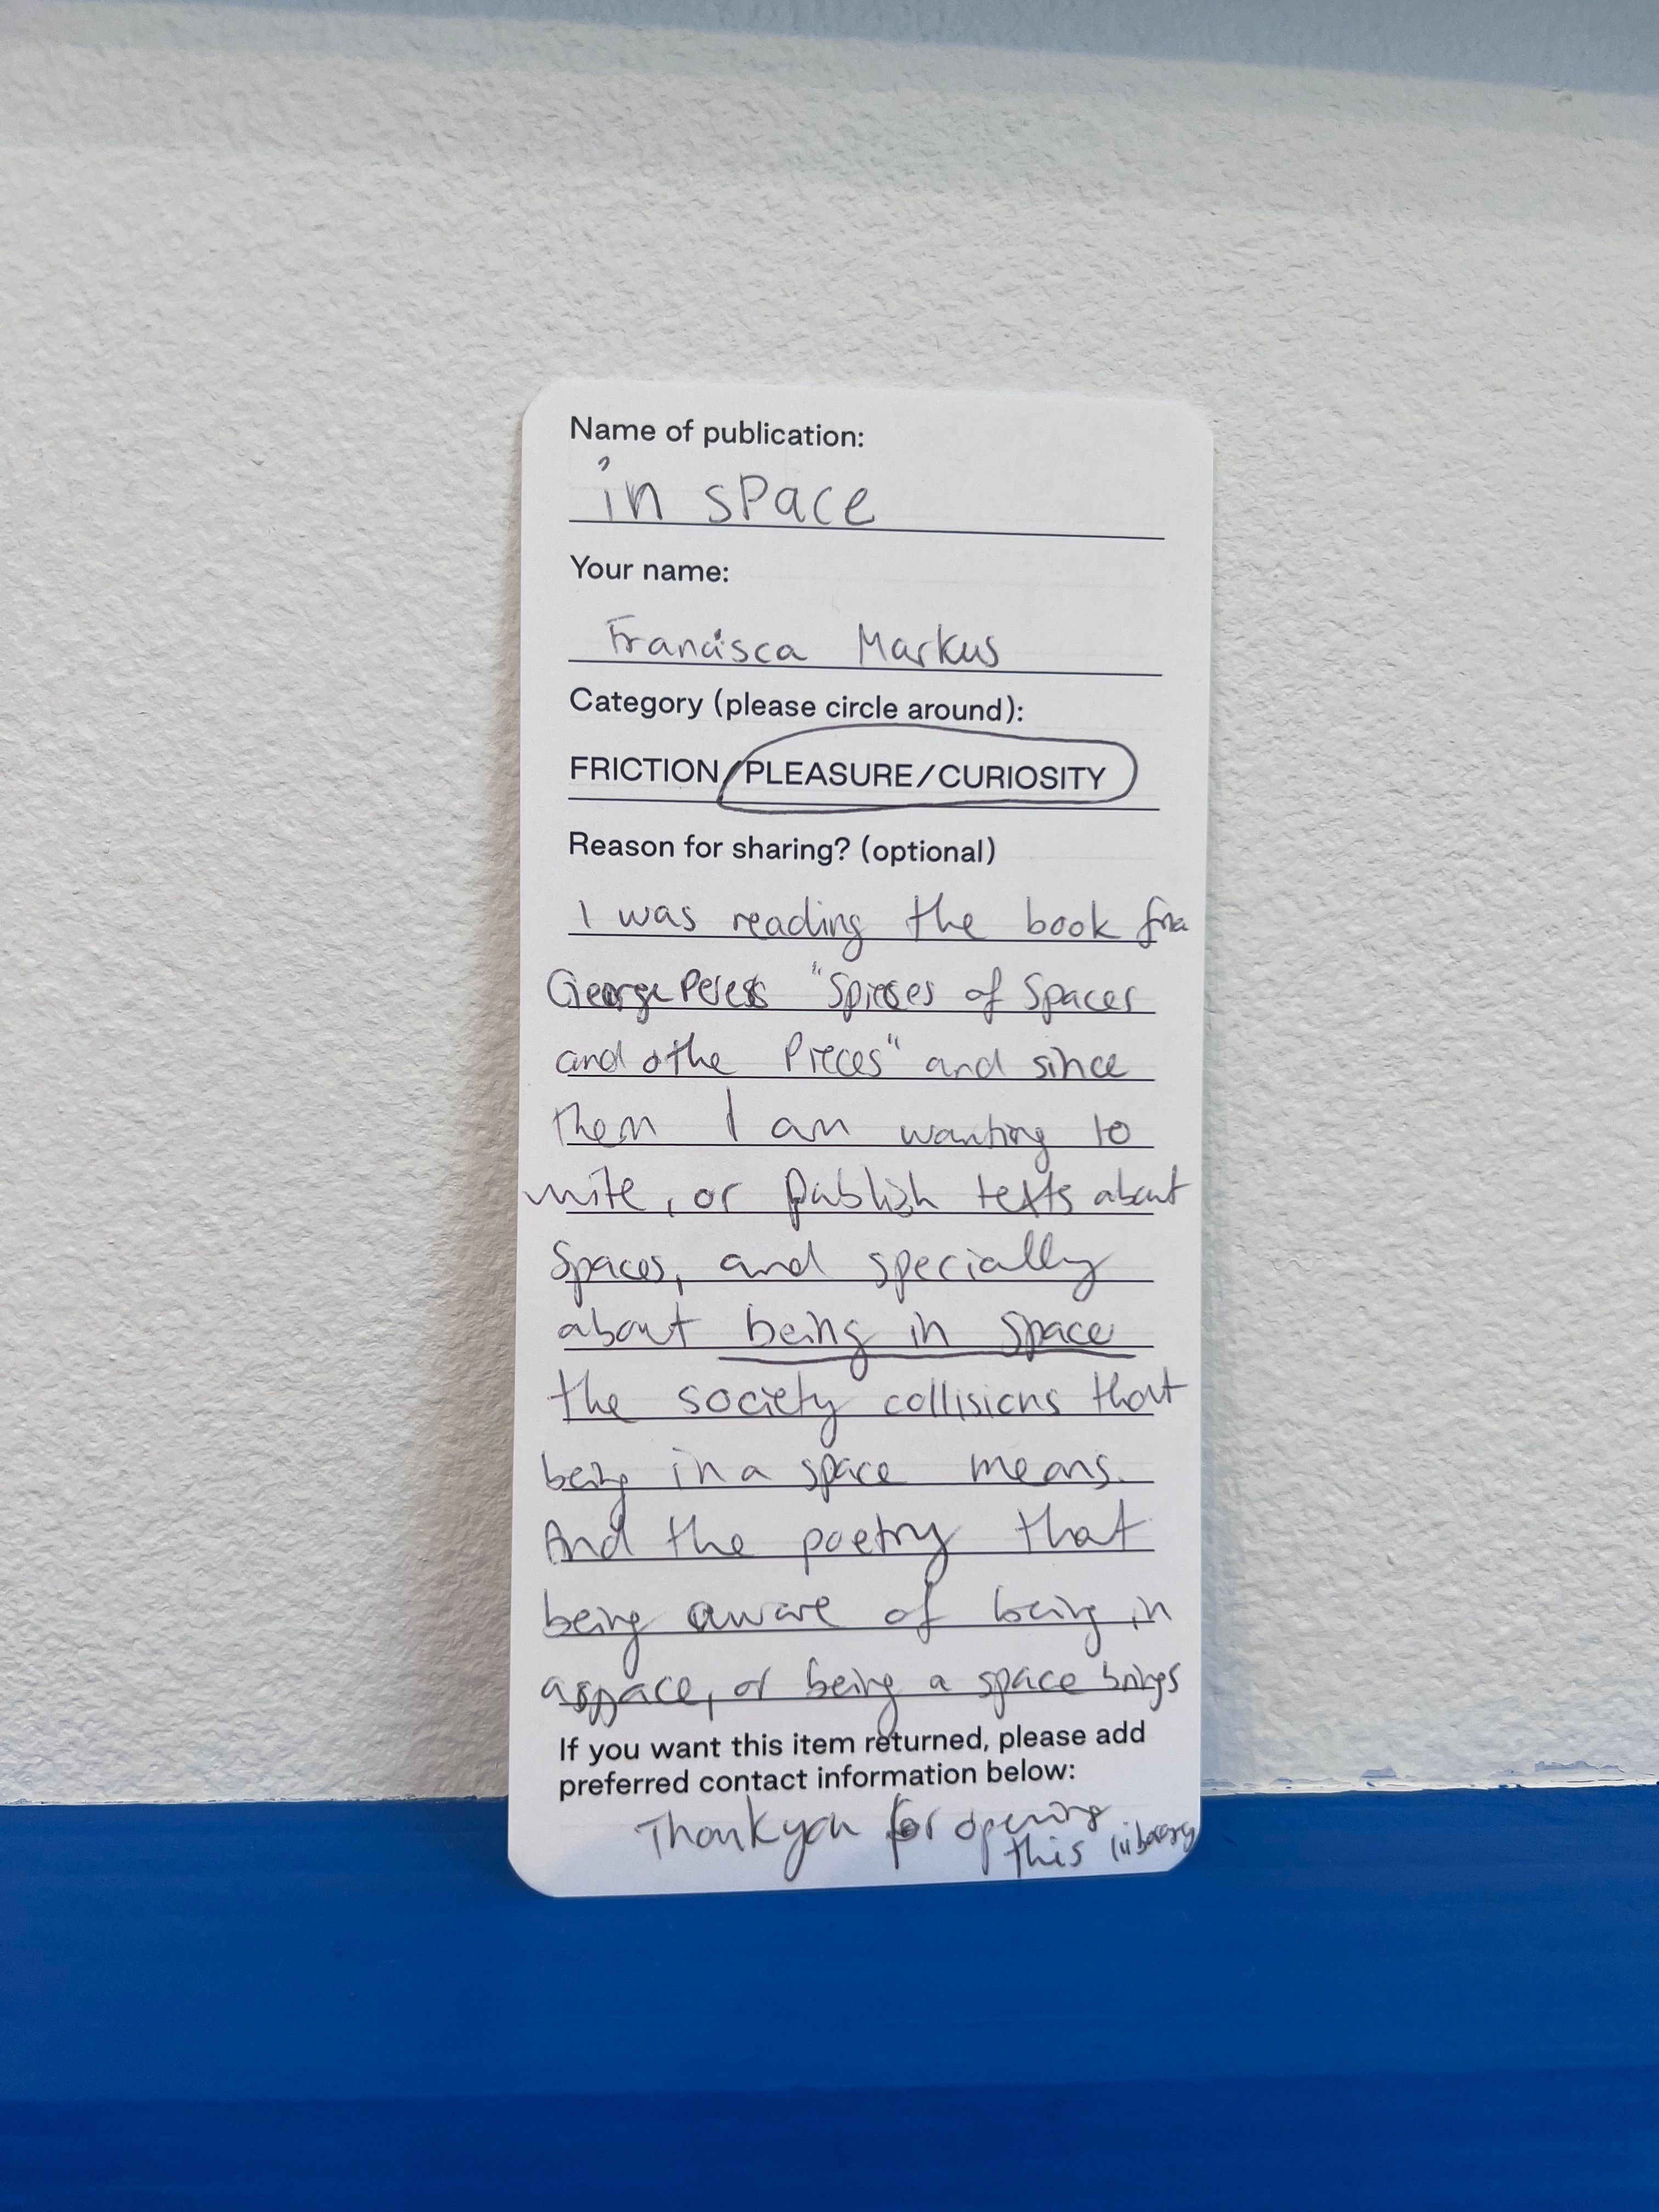 Name of publication:
in space
Your name:
Francisca Markus
Category (please circle around):
FRICTION/PLEASURE/CURIOSITY
Reason for sharing? (optional)
I was reading the book
George "Spieces of Spaces
and othe Pieces" and since
them I am wanting to
write, or publish texts about
Spaces, and specially
about being in space
the society collisions that
being in a space means.
And the poetry that
being aware of being in
a space, or being a space brings
If you want this item returned, please add
preferred contact information below:
Thank you for opening
this